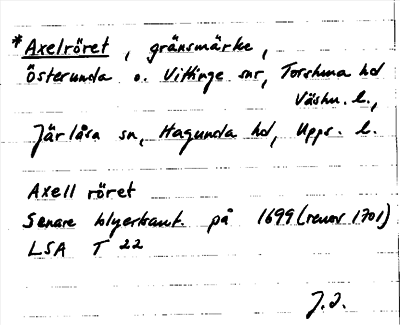 *Axelröret, gränsmärke,
Österunda o. Vittinge snr, Torstuna hd
Västm. l.,
Järlåsa sn, Hagunda hd, Upps. l.
Axell röret
Senare blyertsant. på 1699 (renov 1701)
LSA T 22
J.I.